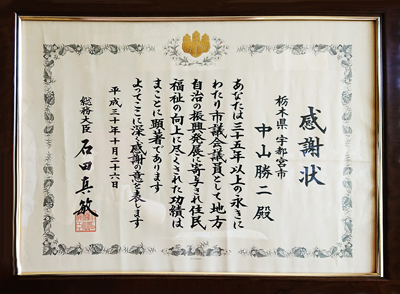 感謝状
栃木県 宇都宮市
中山勝二 殿
あなたは三十五年以上の永きに
わたり市議会議員として地方
自治の振興発展に寄与され住民
福祉の向上に尽くされた功績は
まことに顕著であります
よってここに深く感謝の意を表します
平成三十年十月二十六日
総務大臣 石田真敏